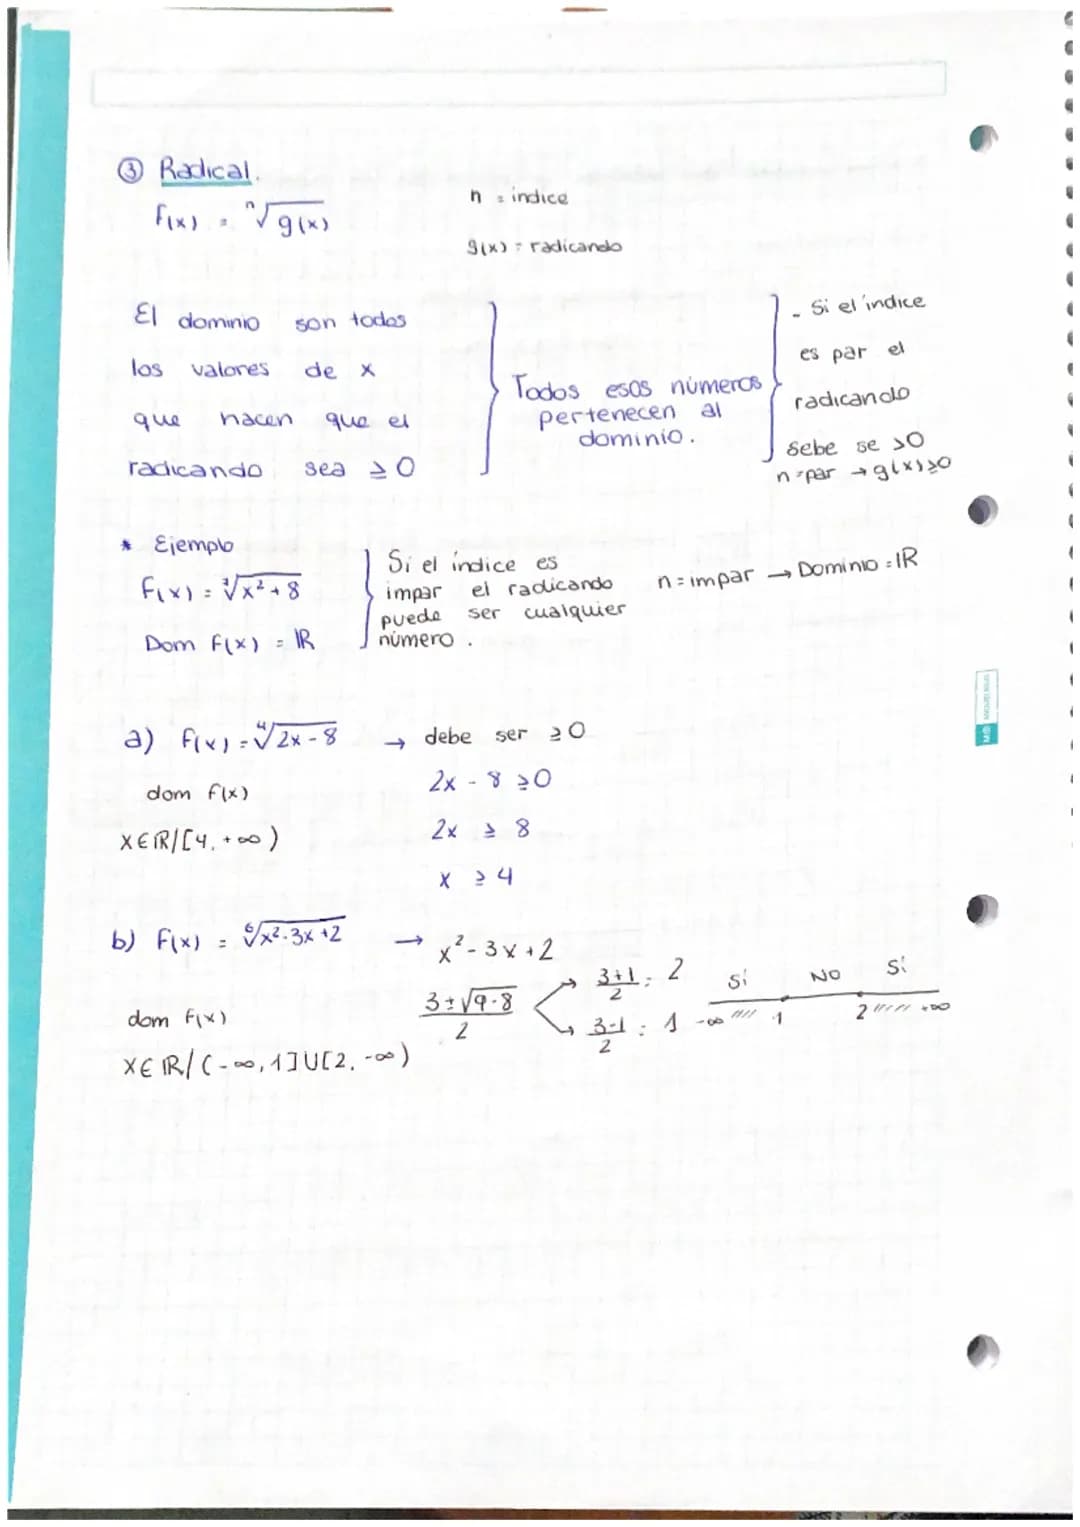 ③ Radical.
f(x) = ⁿ√g(x)
n = índice
g(x) = radicando
El dominio son todos
los valores de x
que hacen que el
radicando sea ≥ 0
Todos esos números
pertenecen al
dominio.
- Si el índice
es par el
radicando
debe se ≥0
n=par → g(x)≥0
* Ejemplo
f(x) = ³√x²+8
Dom f(x) = ℝ
Si el índice es
impar el radicando
puede ser cualquier
número.
n = impar → Dominio = ℝ
a) f(x) = ⁴√2x-8 → debe ser ≥0
dom f(x)
x∈ℝ/[4, +∞)
2x - 8 ≥0
2x ≥ 8
x ≥ 4
b) f(x) = ⁶√x²-3x+2 → x²-3x+2
dom f(x)
x∈ℝ/(-∞,1]U[2,-∞)
3±√9-8 / 2
3+1 / 2 = 2
3-1 / 2 = 1
Sí NO Sí
-∞ 1 2 +∞